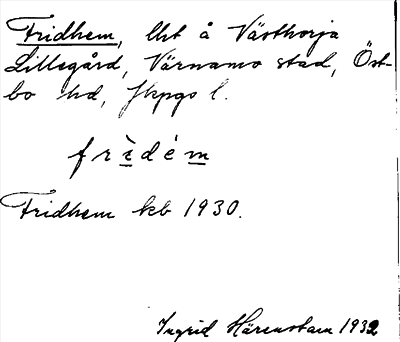 Fridhem, lht å Västhorja
Lillegård, Värnamo stad, Öst-
bo hd, Jkpgs l.
frìdém
Fridhem kb 1930.
Ingrid Härenstam 1932